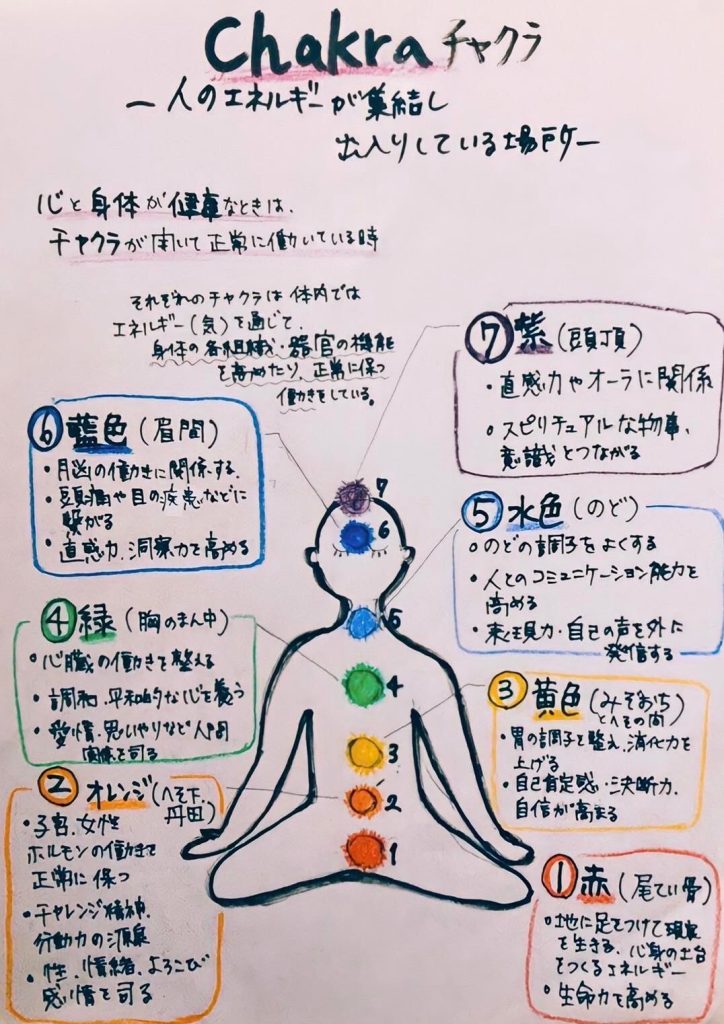 Chakra チャクラ
ー人のエネルギーが集結し
出入りしている場所ー
心と身体が健康なときは、
チャクラが開いて正常に働いている時
それぞれのチャクラは体内では
エネルギー(気)を通じて、
身体の各組織・器官の機能
を高めたり、正常に保つ
働きをしている。
⑦紫(頭頂)
・直感力やオーラに関係
・スピリチュアルな物事、
意識とつながる
⑥藍色(眉間)
・脳の働きに関係する。
・頭痛や目の疾患などに
繋がる
・直感力、洞察力を高める
⑤水色(のど)
・のどの調子をよくする
・人とのコミュニケーション能力を
高める
・表現力・自己の声を外に
発信する
④緑(胸のまん中)
・心臓の働きを整える
・調和、平和的な心を養う
・愛情・思いやりなど人間
関係を司る
③黄色(みぞおち
とへその間)
・胃の調子を整え、消化力を
上げる
・自己肯定感・決断力、
自信が高まる
②オレンジ(へそ下、
丹田)
・子宮、女性
ホルモンの働きを
正常に保つ
・チャレンジ精神、
行動力の源泉
・性、情緒、よろこび
感情を司る
①赤(尾てい骨)
・地に足をつけて現実
を生きる、心身の土台
をつくるエネルギー
・生命力を高める
7
6
5
4
3
2
1